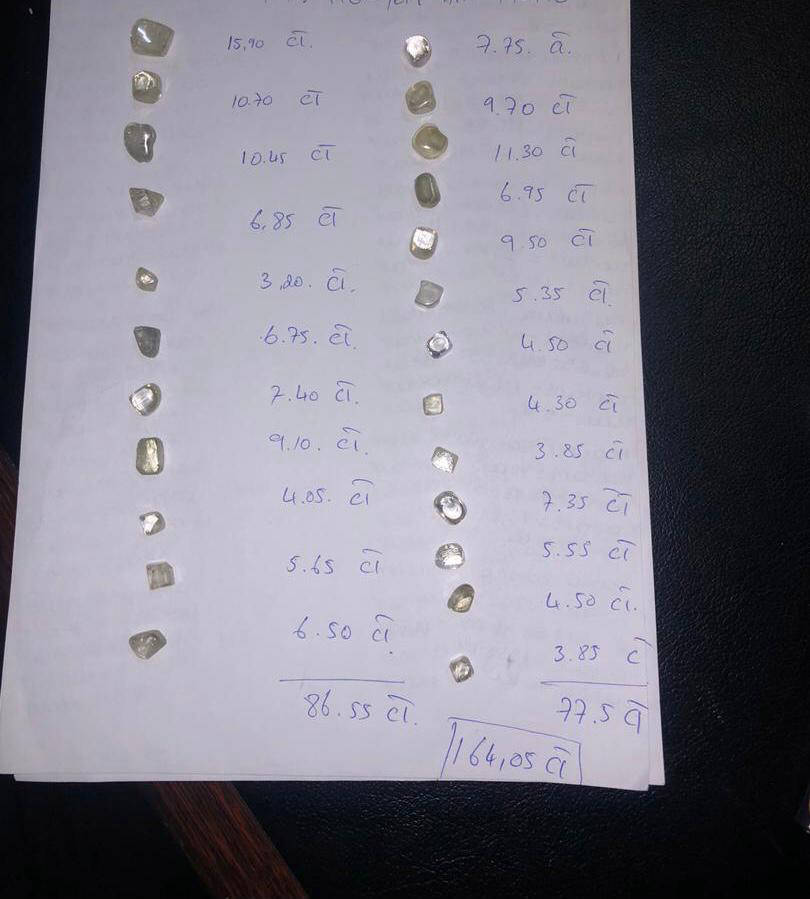 15,90 ct.
10.70 ct
10.45 ct
6,85 ct
3,20. ct.
6.75. ct.
7.40 ct.
9.10. ct.
4.05. ct
5.65 ct
6.50 ct.
86.55 ct.
7.75. ct.
9.70 ct
11.30 ct
6.95 ct
9.50 ct
5.35 ct.
4.50 ct
4.30 ct
3.85 ct
7.35 ct
5.55 ct
4.50 ct.
3.85 ct
77.5 ct
164,05 ct